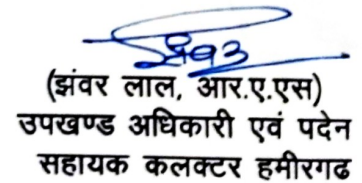 (झंवर लाल, आर.ए.एस)
उपखण्ड अधिकारी एवं पदेन
सहायक कलक्टर हमीरगढ